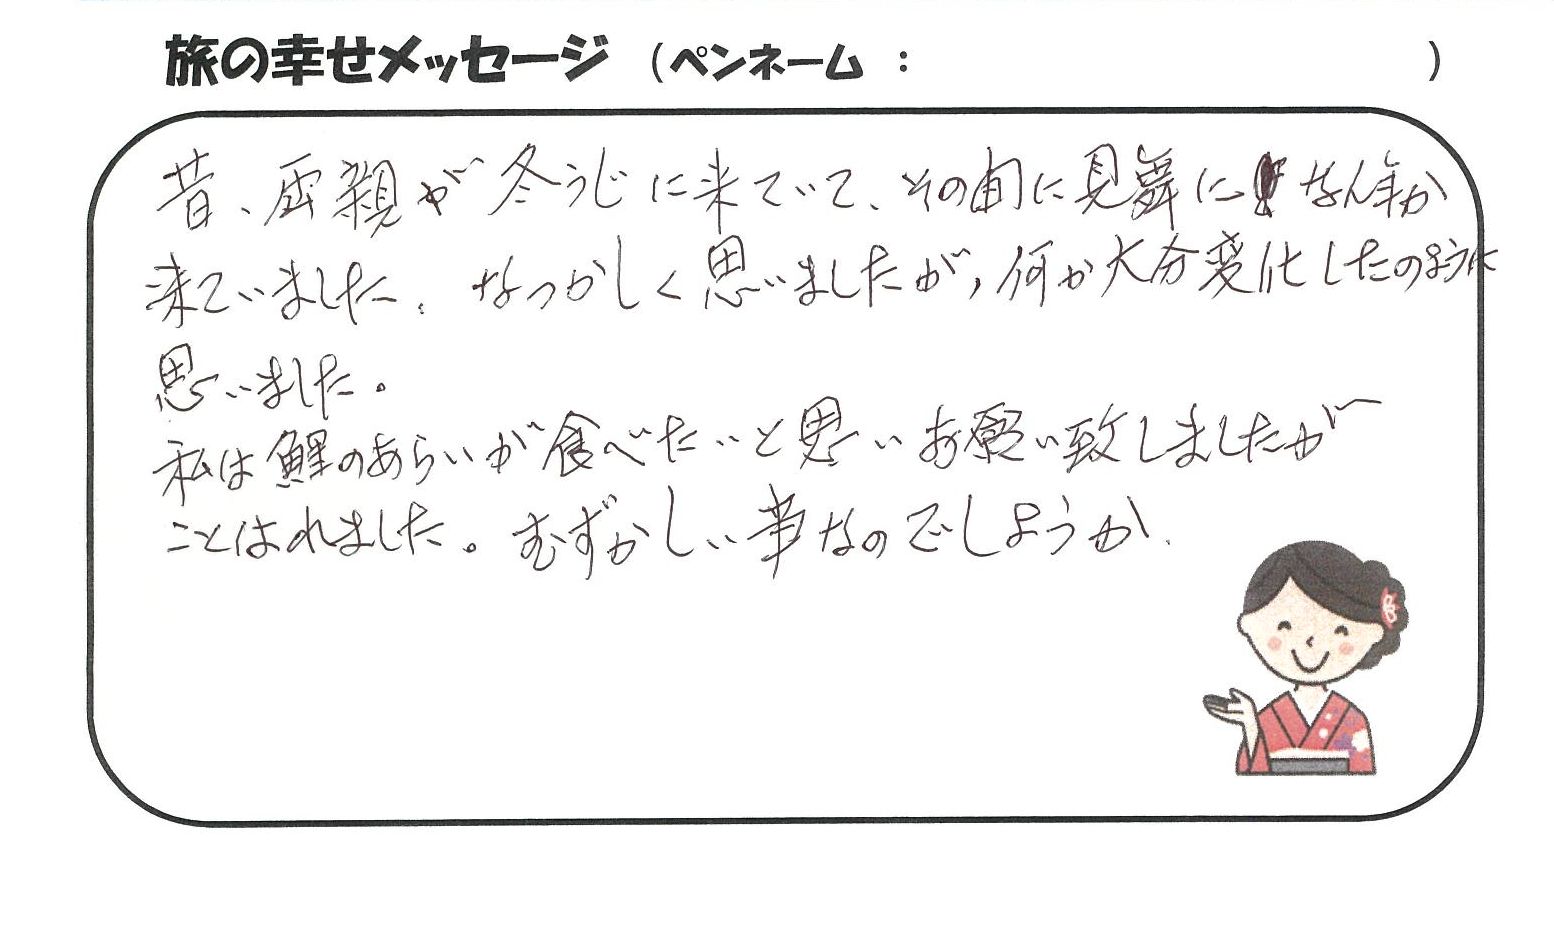 旅の幸せメッセージ （ペンネーム : ）
昔、両親が冬うじに来ていて、その間に見舞になん年か
来ていました。なつかしく思いましたが、何か大分変化したのように
思いました。
私は鯉のあらいが食べたいと思いお願い致しましたが
ことはれました。むずかしい事なのでしょうか.